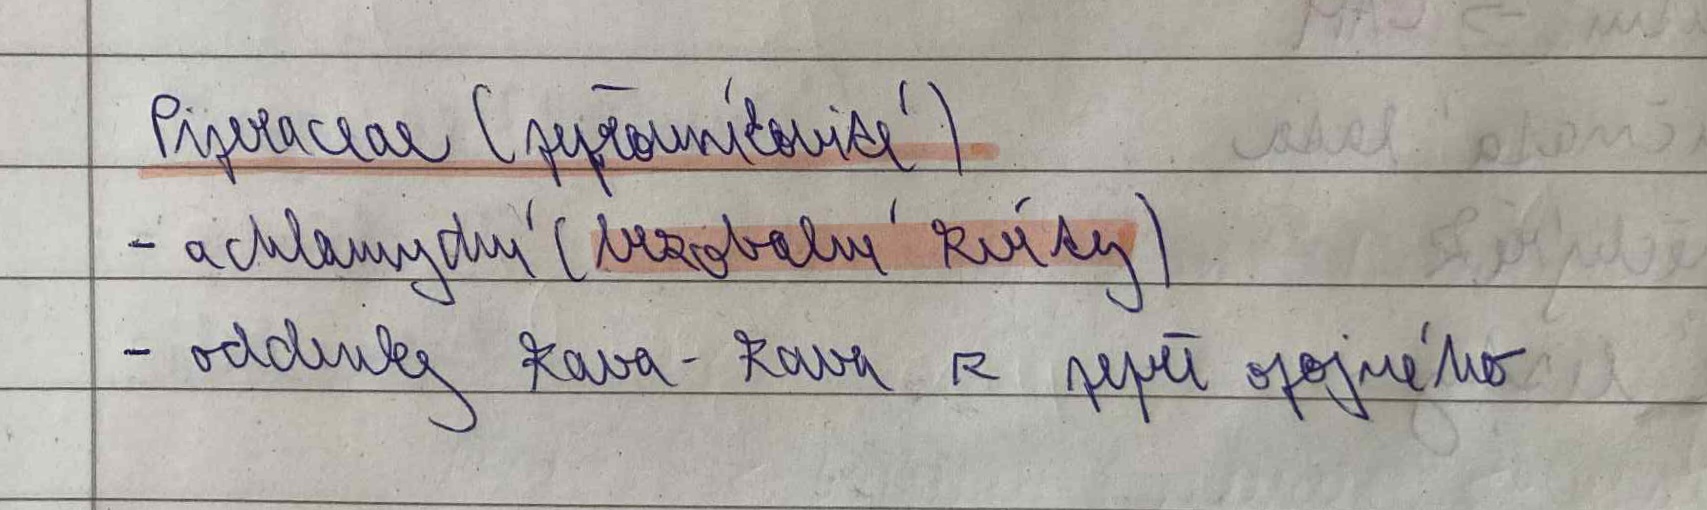 Piperaceae (pepřovníkovité)
- achlamydní (bezobalní květy)
- oddenky kava-kava z pepře opojného